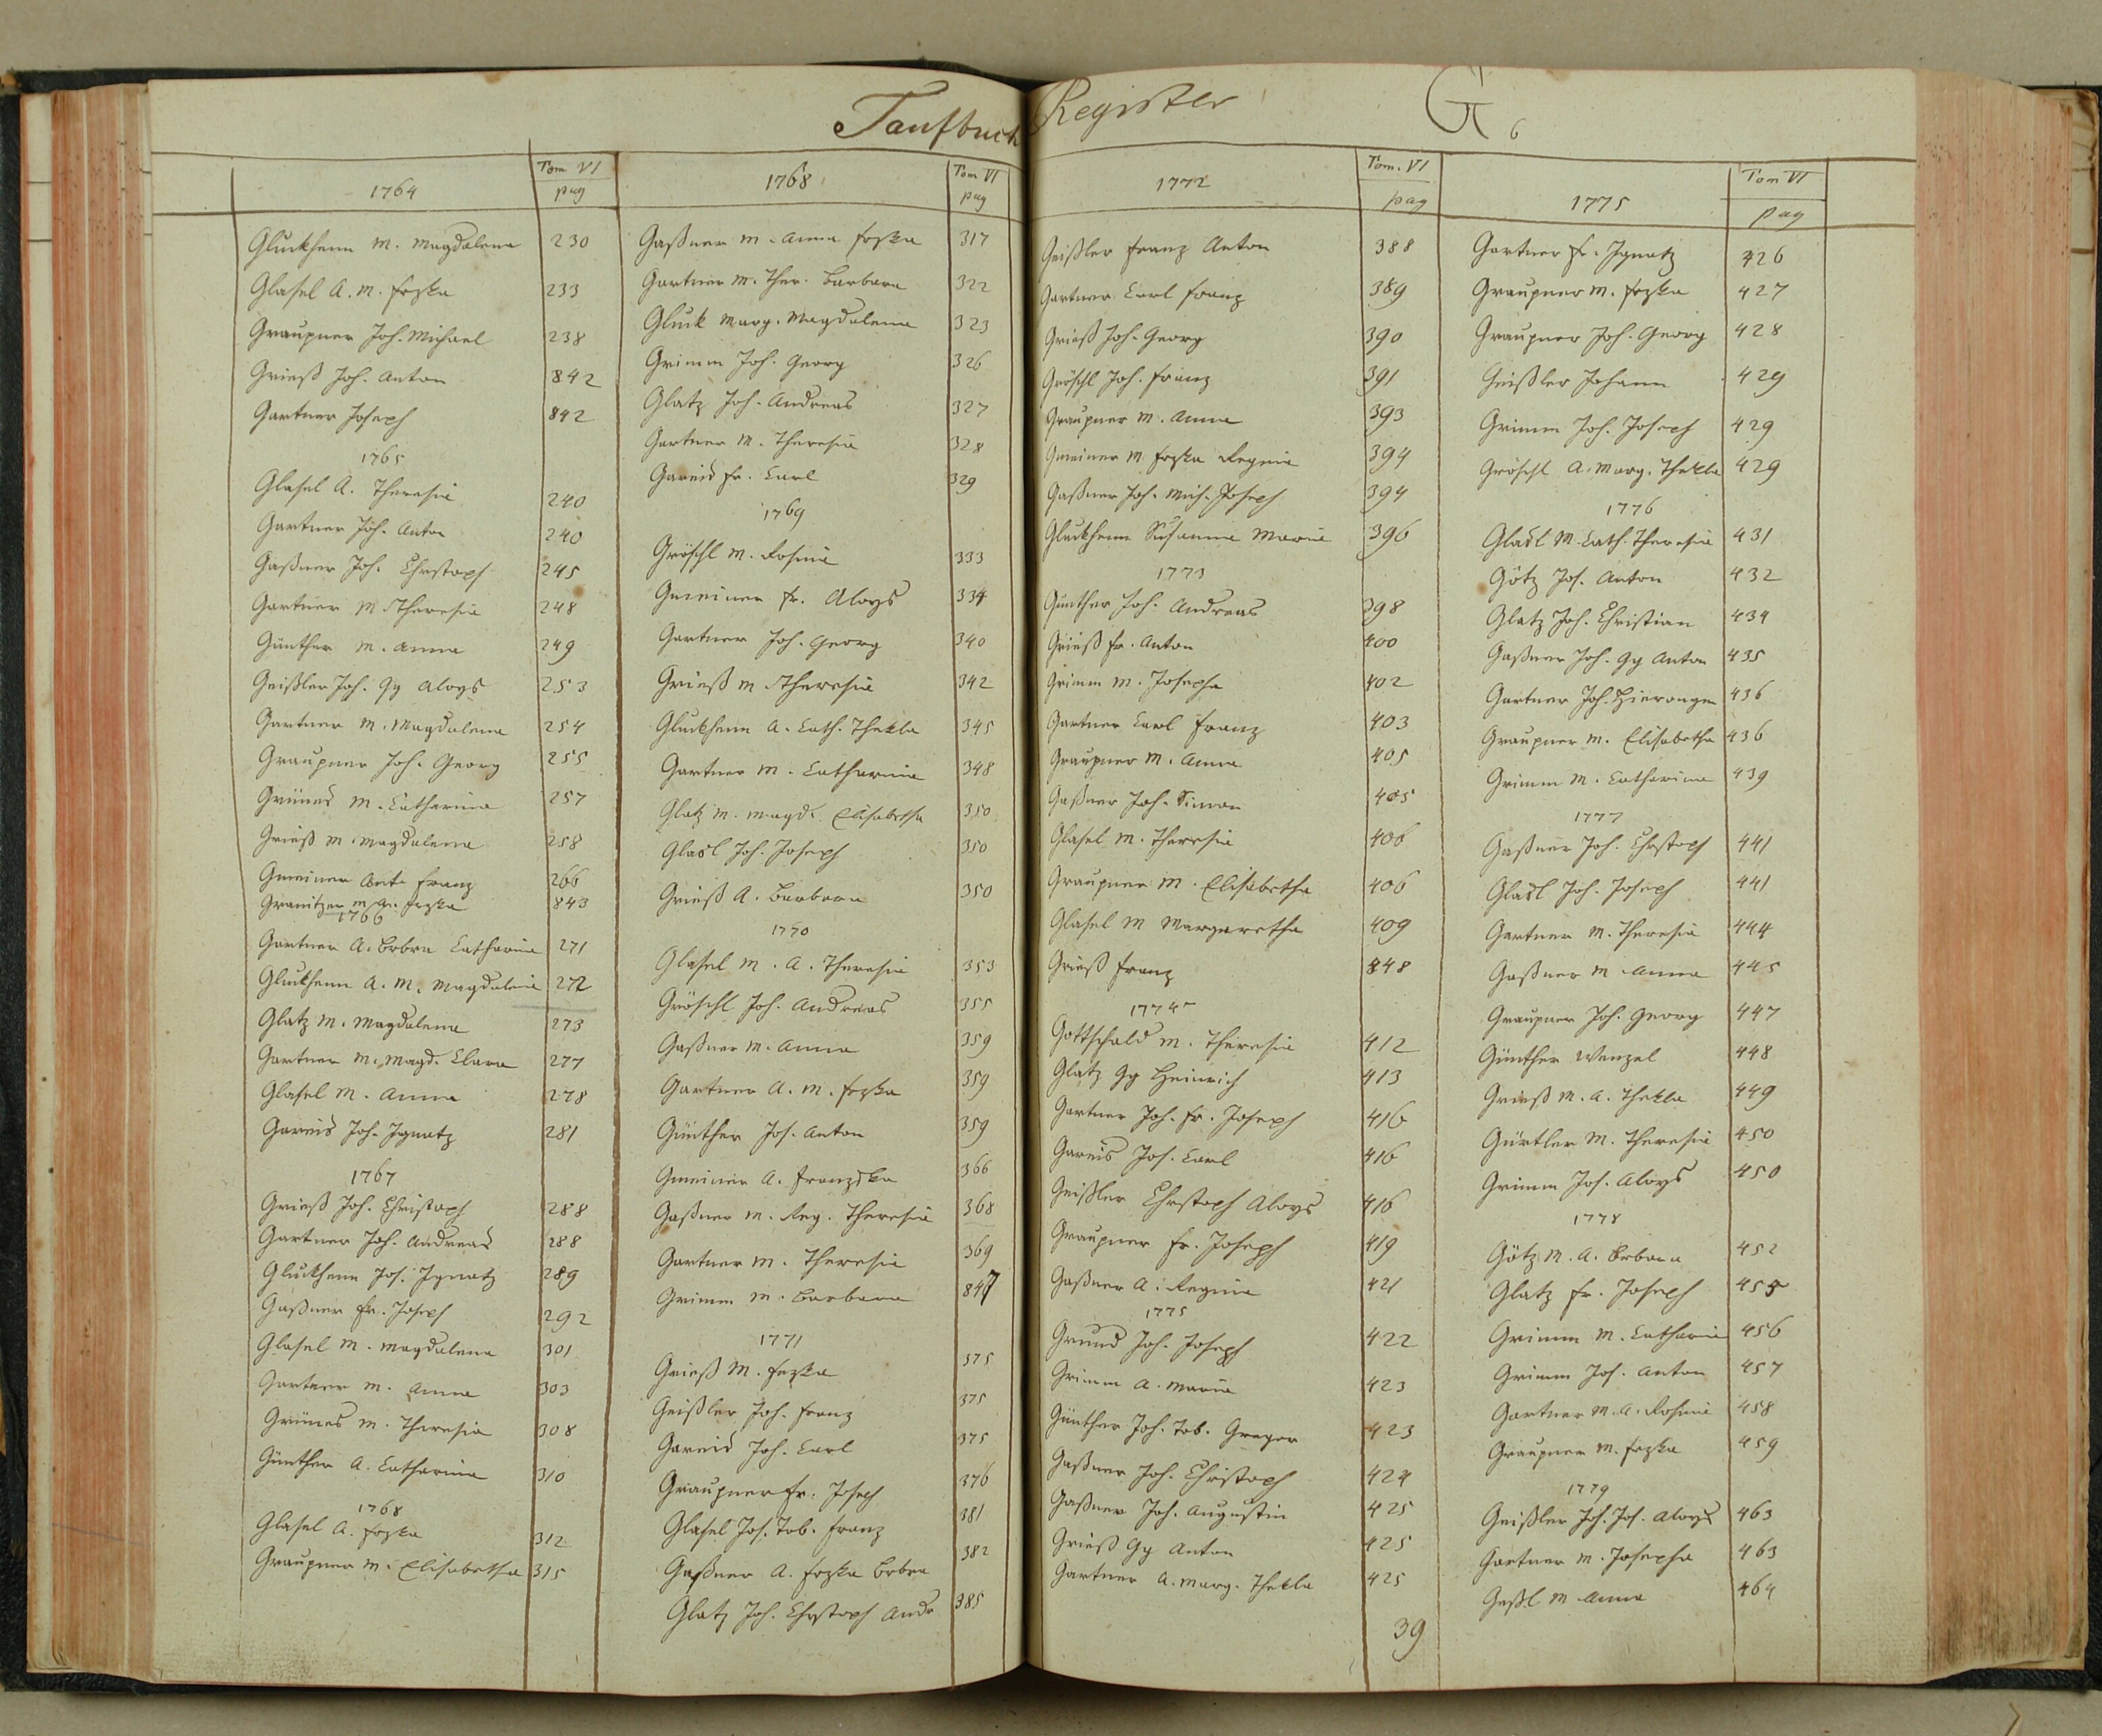 Taufbuch Register G 6
1764 Tom VI pag
Gluckhenn M. Magdalena 230
Glasel A. M. Frzka 233
Graupner Joh. Michael 238
Grieß Joh. Anton 842
Gartner Joseph 842
1765
Glasel A. Theresia 240
Gartner Joh. Anton 240
Gaßner Joh. Chrstoph 245
Gartner M Theresia 248
Günther M. Anna 249
Geißler Joh. Gg Aloys 253
Gartner M. Magdalena 254
Graupner Joh. Georg 255
Grünes M. Catharina 257
Grieß M. Magdalena 258
Gmeiner Ant. Franz 266
Granitzer M A. Frzka 843
1766
Gartner A. Brbra Catharina 271
Gluckhenn A. M. Magdalena 272
Glatz M. Magdalena 273
Gartner M. Magd. Clara 277
Glasel M. Anna 278
Gareis Joh. Ignatz 281
1767
Grieß Joh. Christoph 288
Gartner Joh. Andreas 288
Gluckhenn Jos. Ignatz 289
Gaßner Fr. Joseph 292
Glasel M. Magdalena 301
Gartner M. Anna 303
Grünes M. Theresia 308
Günther A. Catharina 310
1768
Glasel A. Frzka 312
Graupner M. Elisabetha 315
1768 Tom VI pag
Gaßner M. Anna Frzka 317
Gartner M. Ther. Barbara 322
Gluck Marg. Magdalena 323
Grimm Joh. Georg 326
Glatz Joh. Andreas 327
Gartner M. Theresia 328
Gareis Fr. Carl 329
1769
Gröschl M. Rosina 333
Gmeiner Fr. Aloys 334
Gartner Joh. Georg 340
Grieß M Theresia 342
Gluckhenn A. Cath. Thekla 345
Gartner M. Catharina 348
Glatz M. Magd. Elisabetha 350
Glasl Joh. Joseph 350
Grieß A. Barbara 350
1770
Glasel M. A. Theresia 353
Gröschl Joh. Andreas 355
Gaßner M. Anna 359
Gartner A. M. Frzka 359
Günther Jos. Anton 359
Gmeiner A. Franzska 366
Gaßner M. Reg. Theresia 368
Gartner M. Theresia 369
Grimm M. Barbara 847
1771
Grieß M. Frzka 375
Geißler Joh. Franz 375
Gareis Joh. Carl 375
Graupner Fr. Joseph 376
Glasel Jos. Tob. Franz 381
Gaßner A. Frzka Brbra 382
Glatz Joh. Chrstoph Andr 385
1772 Tom. VI pag
Geißler Franz Anton 388
Gartner Carl Franz 389
Grieß Joh. Georg 390
Gröschl Joh. Franz 391
Graupner M. Anna 393
Gmeiner M. Frzka Regina 394
Gaßner Joh. Mich. Joseph 394
Gluckhenn Susanna Maria 396
1773
Günther Joh. Andreas 398
Grieß Fr. Anton 400
Grimm M. Josepha 402
Gartner Carl Franz 403
Graupner M. Anna 405
Gaßner Joh. Simon 405
Glasel M. Theresia 406
Graupner M. Elisabetha 406
Glasel M Margaretha 409
Grieß Franz 848
1774
Gottschald M. Theresia 412
Glatz Gg Heinrich 413
Gartner Joh. Fr. Joseph 416
Gareis Jos. Carl 416
Geißler Chrstoph Aloys 416
Graupner Fr. Joseph 419
Gaßner A. Regina 421
1775
Grund Joh. Joseph 422
Grimm A. Maria 423
Günther Joh. Tob. Gregor 423
Gaßner Joh. Christoph 424
Gaßner Joh. Augustin 425
Grieß Gg Anton 425
Gartner A. Marg. Thekla 425
39
1775 Tom VI pag
Gartner Fr. Ignatz 426
Graupner M. Frzka 427
Graupner Joh. Georg 428
Geißler Johann 429
Grimm Joh. Joseph 429
Gröschl A. Marg. Thekla 429
1776
Glasl M. Cath. Theresia 431
Götz Jos. Anton 432
Glatz Joh. Christian 434
Gaßner Joh. Gg Anton 435
Gartner Joh. Hieronym 436
Graupner M. Elisabetha 436
Grimm M. Catharina 439
1777
Gaßner Joh. Chrstoph 441
Glasl Joh. Joseph 441
Gartner M. Theresia 444
Gaßner M Anna 445
Graupner Joh. Georg 447
Günther Wenzel 448
Grieß M. A. Thekla 449
Gürtler M. Theresia 450
Grimm Jos. Aloys 450
1778
Götz M. A. Brbara 452
Glatz Fr. Joseph 455
Grimm M. Catharin 456
Grimm Jos. Anton 457
Gartner M. A. Rosina 458
Graupner M. Frzka 459
1779
Geißler Joh. Jos. Aloys 463
Gartner M. Josepha 463
Geßl M Anna 464